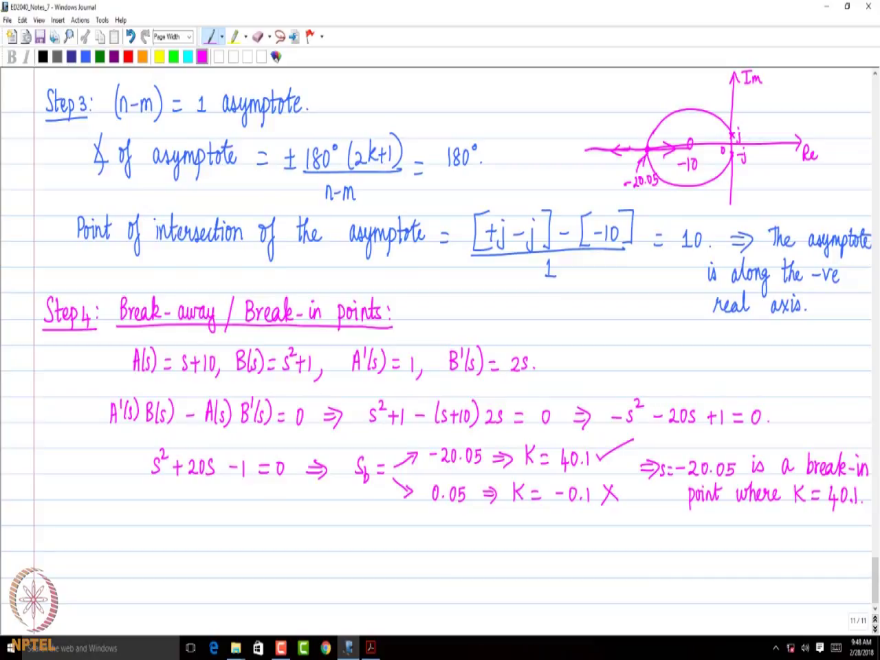 ED2040_Notes_7 - Windows Journal
File Edit View Insert Actions Tools Help
Page Width
B I
Step 3: (n-m) = 1 asymptote.
∡ of asymptote = ± 180° (2k+1) / n-m = 180°.
Im
j
0
-j
Re
-10
-20.05
Point of intersection of the asymptote = [+j -j] - [-10] / 1 = 10. ⇒ The asymptote
is along the -ve
real axis.
Step 4: Break-away / Break-in points:
A(s) = s+10, B(s) = s²+1, A'(s) = 1, B'(s) = 2s.
A'(s) B(s) - A(s) B'(s) = 0 ⇒ s²+1 - (s+10) 2s = 0 ⇒ -s² - 20s + 1 = 0.
s² + 20s - 1 = 0 ⇒ S_b = → -20.05 ⇒ K = 40.1 ✓ ⇒ s = -20.05 is a break-in
→ 0.05 ⇒ K = -0.1 X point where K = 40.1.
11 / 11
NPTEL
the web and Windows
9:48 AM
2/28/2018